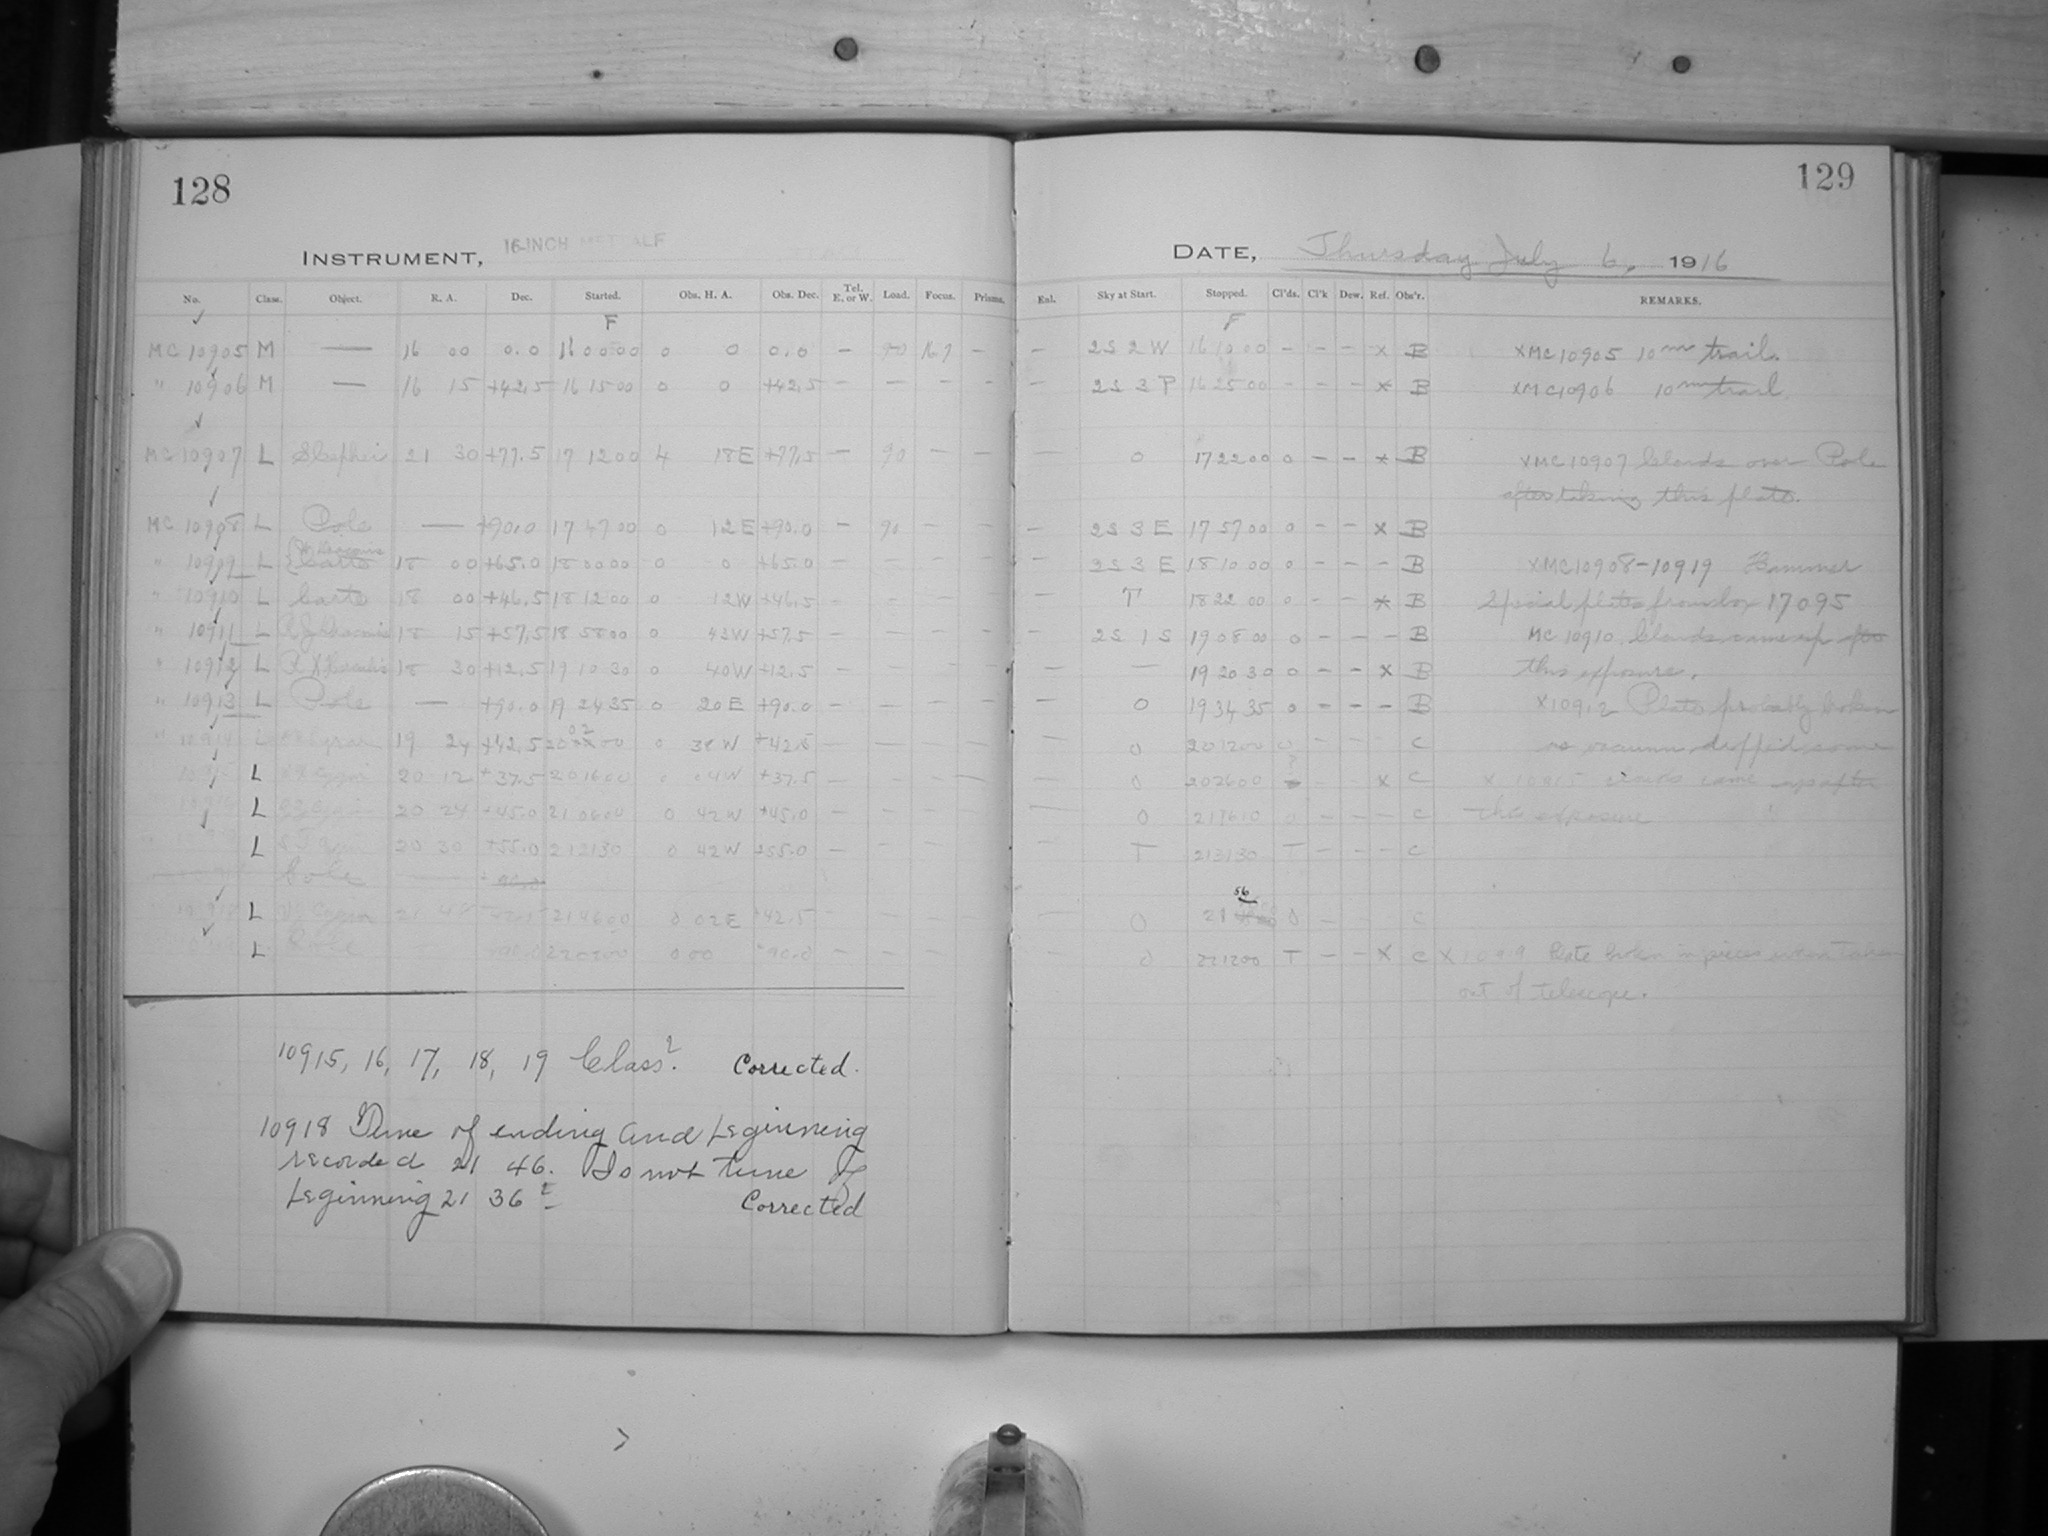 128
INSTRUMENT, 16-INCH METCALF
No. Class. Object. R. A. Dec. Started. Obs. H. A. Obs. Dec. Tel. E. or W. Load. Focus. Prisms.
F
MC 10905 M — 16 00 0.0 16 00 00 0 0 0.0 — 90 16.9 —
" 10906 M — 16 15 +42.5 16 15 00 0 0 +42.5 — — — —
MC 10907 L S Cephei 21 30 +77.5 17 12 00 4 18 E +77.5 — 90 — —
MC 10908 L Pole — +90.0 17 47 00 0 12 E +90.0 — 90 — —
" 10909 L Carte 18 00 +65.0 18 00 00 0 0 +65.0 — — — —
" 10910 L Carte 18 00 +46.5 18 12 00 0 12 W +46.5 — — — —
" 10911 L Draconis 18 15 +57.5 18 58 00 0 43 W +57.5 — — — —
" 10912 L Herculis 18 30 +12.5 19 10 30 0 40 W +12.5 — — — —
" 10913 L Pole — +90.0 19 24 35 0 20 E +90.0 — — — —
" 10914 L 19 24 +42.5 20 02 00 0 38 W +42.5 — — — —
L Cygni 20 12 +37.5 20 16 00 0 04 W +37.5 — — — —
L Cygni 20 24 +45.0 21 06 00 0 42 W +45.0 — — — —
L 20 30 +55.0 21 21 30 0 42 W +55.0 — — — —
Pole — +90.0
L Cygni 21 48 +42.5 21 46 00 0 02 E +42.5 — — — —
L Pole +90.0 22 02 00 0 00 +90.0 — — — —
10915, 16, 17, 18, 19 Class? Corrected.
10918 Time of ending and beginning
recorded 21 46. Is not time of
beginning 21 36? Corrected
129
DATE, Thursday July 6, 1916
Enl. Sky at Start. Stopped. Cl'ds. Cl'k Dew. Ref. Obs'r. REMARKS.
F
— 2S 2 W 16 10 00 — — — x B XMC10905 10m trail.
— 2S 3 P 16 25 00 — — — x B XMC10906 10m trail.
— 0 17 22 00 0 — — x B XMC10907 Clouds over Pole
after taking this plate.
— 2S 3 E 17 57 00 0 — — x B
— 2S 3 E 18 10 00 0 — — — B XMC10908-10919 Hammer
T 18 22 00 0 — — x B Special plates from box 17095
— 2S 1 S 19 08 00 0 — — — B MC 10910 Clouds came up after
— — 19 20 30 0 — — x B this exposure.
— 0 19 34 35 0 — — — B X10912 Plate probably broken
— 0 20 12 00 0 — — — C as vacuum dropped some
0 20 26 00 ? — — x C X 10915 clouds came up after
— 0 21 16 10 0 — — — C the exposure
— T 21 31 30 T — — — C
56
— 0 21 0 — — C
— 0 22 12 00 T — — x C X 10919 Plate broken in pieces when taken
out of telescope.